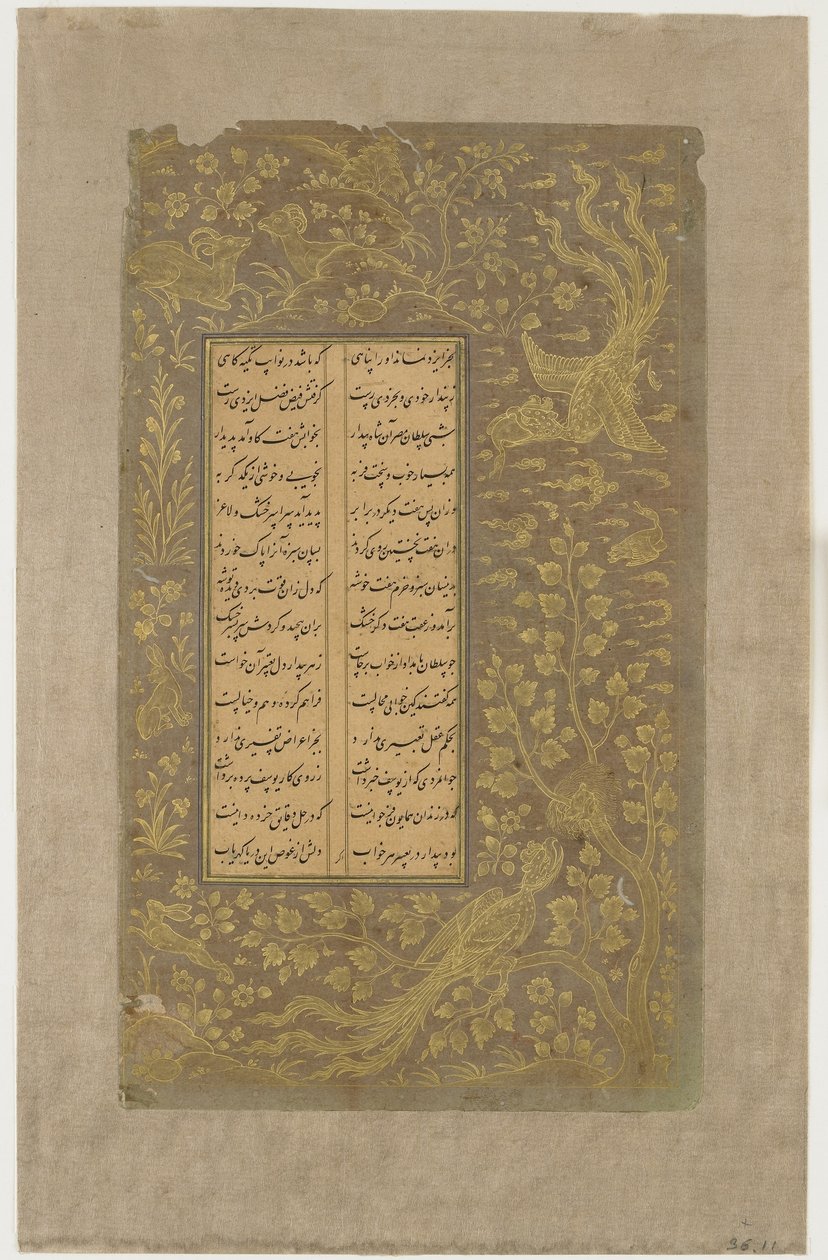 بجز ایزد نماند او را پناهی که باشد در نوایب تکیه گاهی
ز پندار خودی و بخردی رست گرفتش فیض فضل ایزدی دست
شبی سلطان مصر آن شاه بیدار بخوابش هفت گاو آمد پدیدار
همه بسیار خوب و سخت فربه بخوبی و خوشی از یکدگر به
وزان پس هفت دیگر در برابر پدید آمد سراسر خشک و لاغر
دران هفت نخستین روی کردند بسان سبزه آنرا پاک خوردند
بدینسان سبز و خرم هفت خوشه که دل زان قوت بردی دیده توشه
برآمد وز عقب هفت دگر خشک بران پیچید و کردش سربسر خشک
چو سلطان بامداد از خواب برخاست ز هر بیدار دل تعبیر آن خواست
همه گفتند کین خوابی محالیست فراهم کرده وهم و خیالیست
بحکم عقل تعبیری ندارد بجز اعراض تفسیری ندارد
جوانمردی که از یوسف خبر داشت ز روی کار یوسف پرده برداشت
که در زندان همایون فر جوانیست که در حل دقایق خرده دانیست
بود بیدار در تعبیر هر خواب دلش از غوص این دریا گهریاب
اگر
36.11